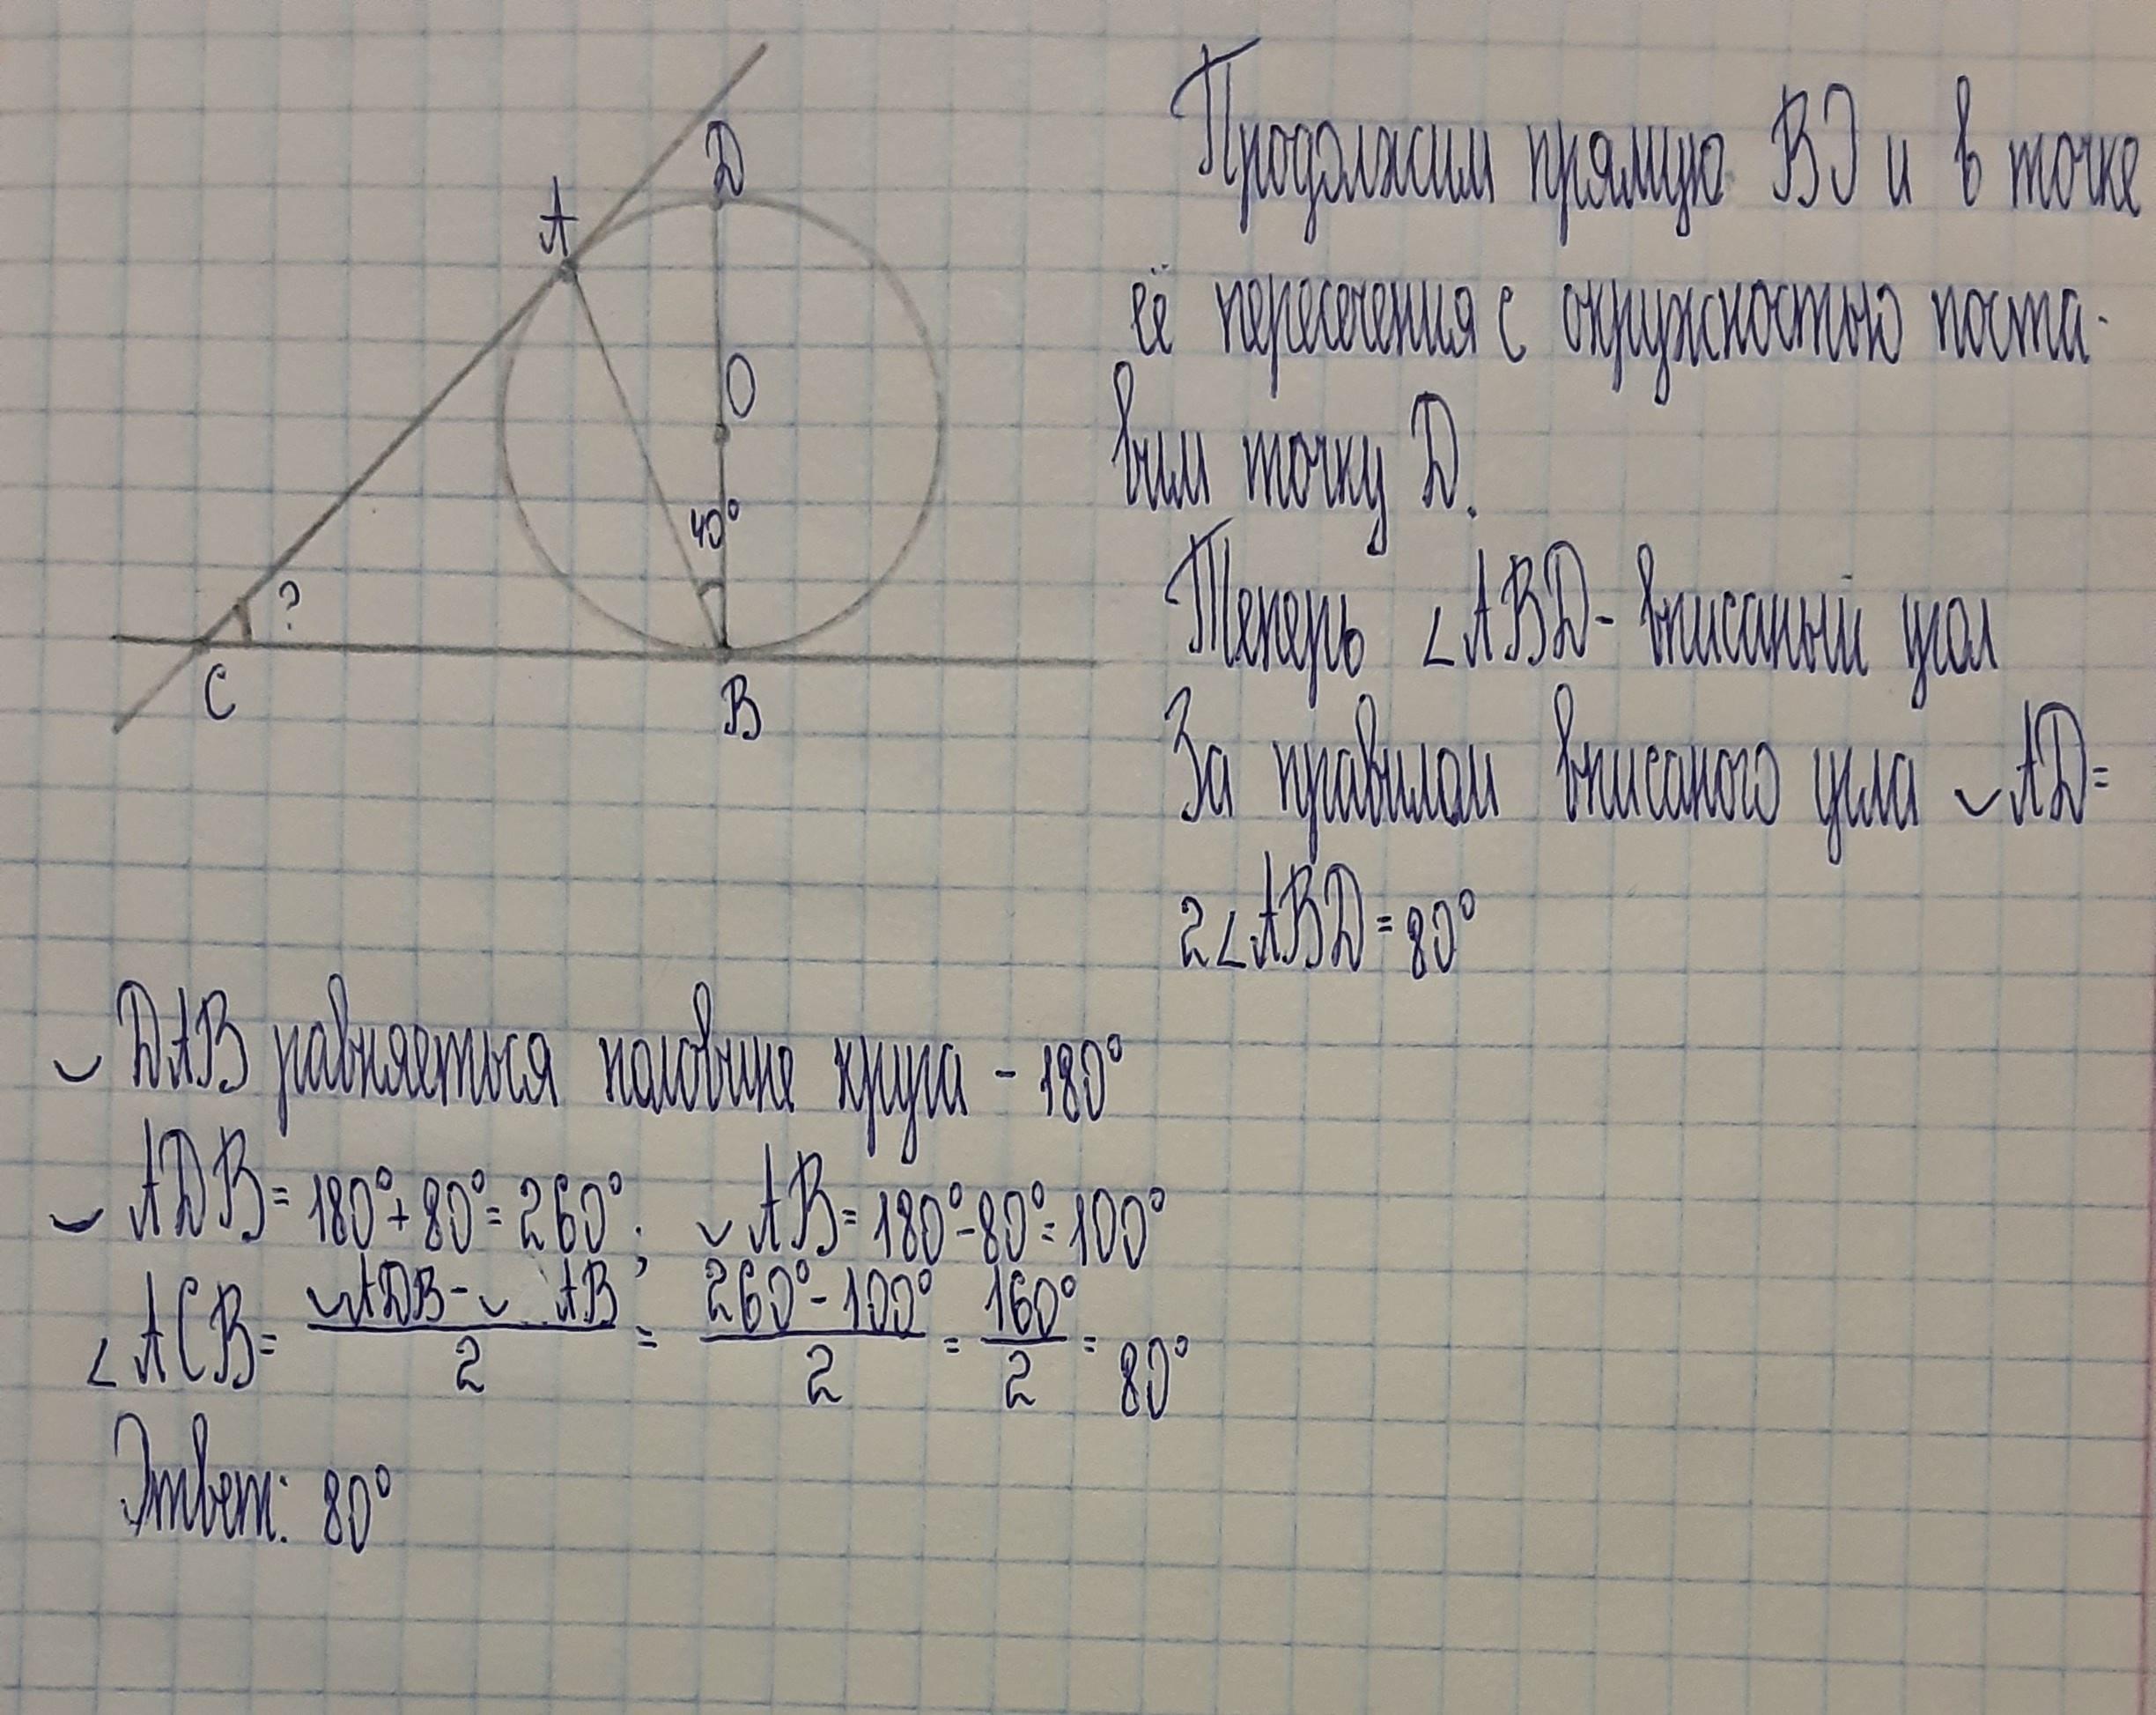 D
A
O
40°
?
C
B
Продолжим прямую BO и в точке
её пересечения с окружностью поста-
вим точку D.
Теперь ∠ABD - вписаный угол
За правилом вписаного угла ◡AD=
2∠ABD=80°
◡DAB равняеться половине круга - 180°
◡ADB=180°+80°=260°; ◡AB=180°-80°=100°
∠ACB= (◡ADB-◡AB)/2 = (260°-100°)/2 = 160°/2 = 80°
Ответ: 80°